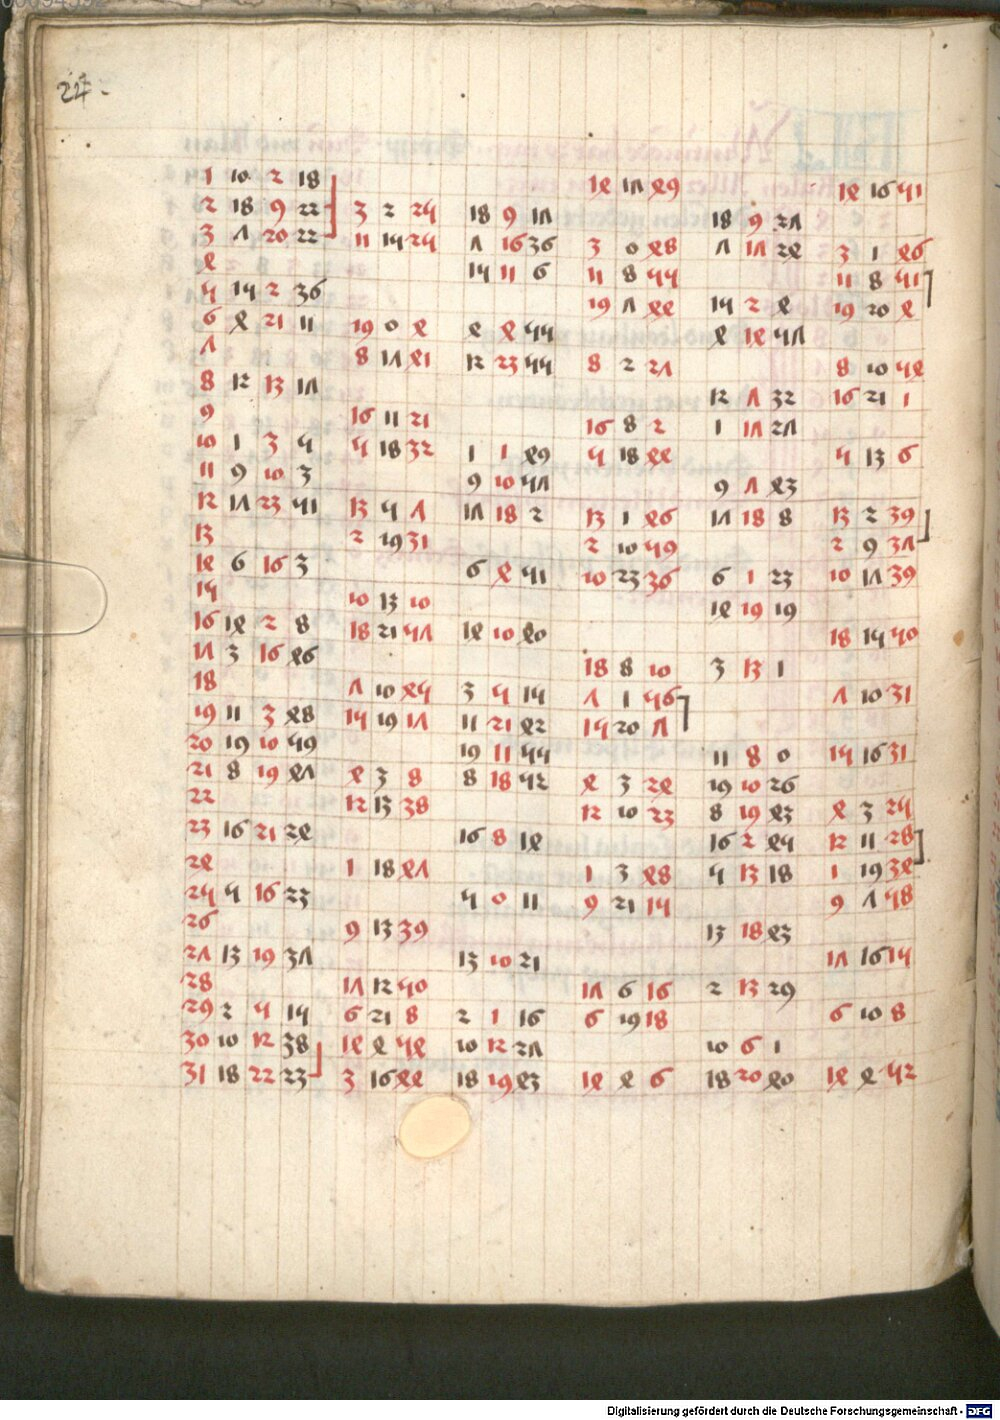 24
1 10 2 18 14 17 49 14 16 51
2 18 9 22 3 2 25 18 9 17 18 9 27
3 7 20 22 11 15 25 7 16 36 3 0 48 7 17 24 3 1 46
4 15 11 6 11 8 55 11 8 51
5 15 2 36 19 7 44 15 2 4 19 20 4
6 4 21 11 19 0 4 4 4 55 4 14 57
7 8 17 41 12 23 55 8 2 27 8 10 54
8 12 13 17 12 7 32 16 21 1
9 16 11 21 16 8 2 1 17 27
10 1 3 5 5 18 32 1 1 49 5 18 44 5 13 6
11 9 10 3 9 10 57 9 7 43
12 17 23 51 13 5 7 17 18 2 13 1 46 17 18 8 13 2 39
13 2 19 31 2 10 59 2 9 37
14 6 16 3 6 4 51 10 23 36 6 1 23 10 17 39
15 10 13 10 14 19 19
16 14 2 8 18 21 57 14 10 40 18 15 50
17 3 16 46 18 8 10 3 13 1
18 7 10 45 3 5 15 7 1 56 7 10 31
19 11 3 48 15 19 17 11 21 42 15 20 7
20 19 10 59 19 11 55 11 8 0 15 16 31
21 8 19 47 4 3 8 8 18 52 4 3 24 19 10 26
22 12 13 38 12 10 23 8 19 43 4 3 25
23 16 21 24 16 8 14 16 2 45 12 11 28
24 1 18 47 1 3 48 5 13 18 1 19 34
25 5 16 23 5 0 11 9 21 15 9 7 58
26 9 13 39 13 18 43
27 13 19 37 13 10 21 17 16 15
28 17 12 50 17 6 16 2 13 29
29 2 5 15 6 21 8 2 1 16 6 19 18 6 10 8
30 10 12 38 14 4 54 10 12 27 10 6 1
31 18 22 23 3 16 44 18 19 43 14 4 6 18 20 40 14 4 52
Digitalisierung gefördert durch die Deutsche Forschungsgemeinschaft - DFG